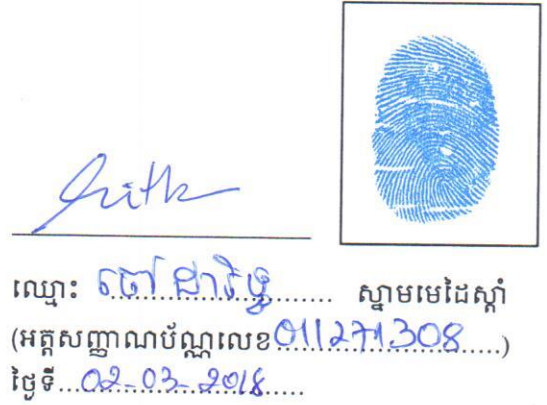 ឈ្មោះ ចៅ ដារិទ្ធ ស្នាមមេដៃស្តាំ
(អត្តសញ្ញាណប័ណ្ណលេខ 011271308)
ថ្ងៃទី 02-03-2018